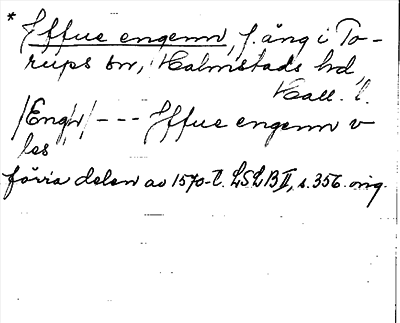 * Effue engenn, f. äng i To-
rups sn, Halmstads hd,
Hall. l.
/Eng/ --- Effue engenn v
les
förra delen av 1570-t. LSLB II, s. 356. orig.